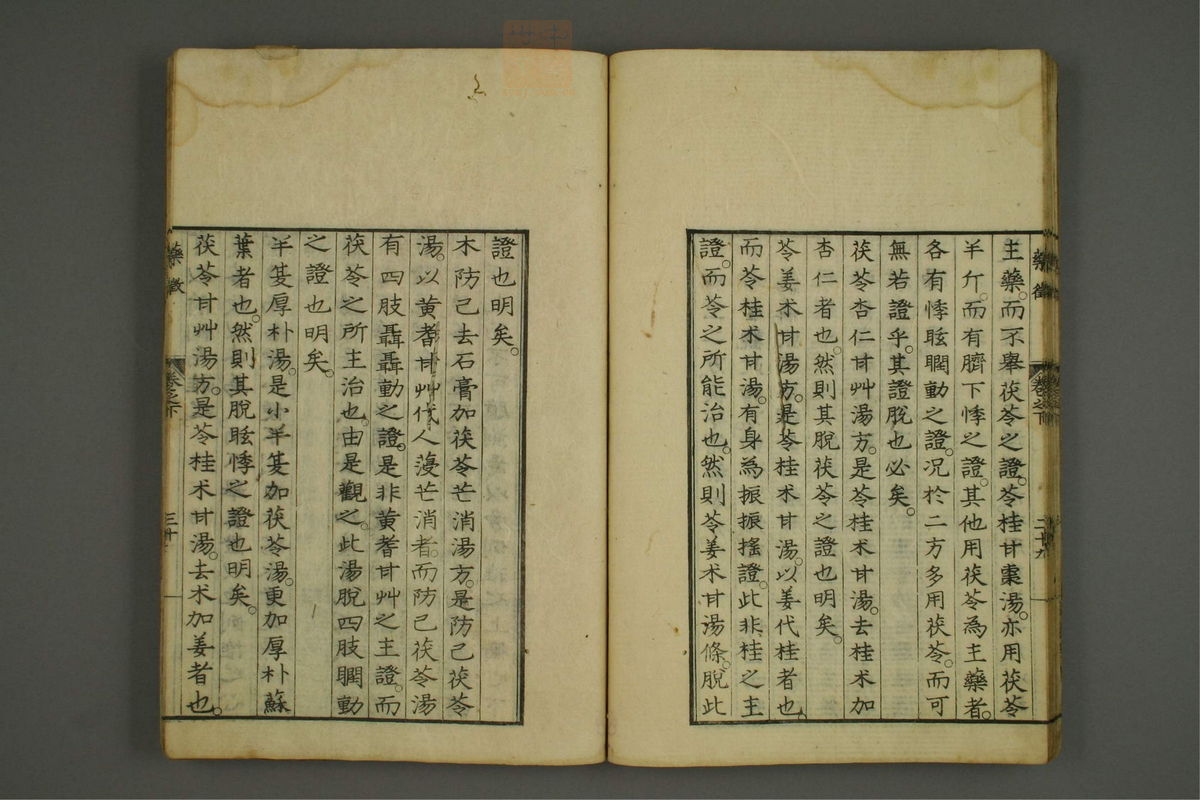 主藥。而不舉茯苓之證。苓桂甘棗湯。亦用茯苓
半斤。而有臍下悸之證。其他用茯苓為主藥者。
各有悸眩瞤動之證。况於二方多用茯苓。而可
無若證乎。其證脫也必矣。
茯苓杏仁甘艸湯方。是苓桂朮甘湯。去桂朮加
杏仁者也。然則其脫茯苓之證也明矣。
苓姜朮甘湯方。是苓桂朮甘湯。以姜代桂者也。
而苓桂朮甘湯。有身為振振搖證。此非桂之主
證。而苓之所能治也。然則苓姜朮甘湯條。脫此
藥徵
卷之下
二十九
證也明矣。
木防己去石膏加茯苓芒消湯方。是防己茯苓
湯。以黃耆甘艸代人薓芒消者。而防己茯苓湯
有四肢聶聶動之證。是非黃耆甘艸之主證。而
茯苓之所主治也。由是觀之。此湯脫四肢瞤動
之證也明矣。
半夏厚朴湯。是小半夏加茯苓湯。更加厚朴蘇
葉者也。然則其脫眩悸之證也明矣。
茯苓甘艸湯方。是苓桂朮甘湯。去朮加姜者也。
藥徵
卷之下
三十